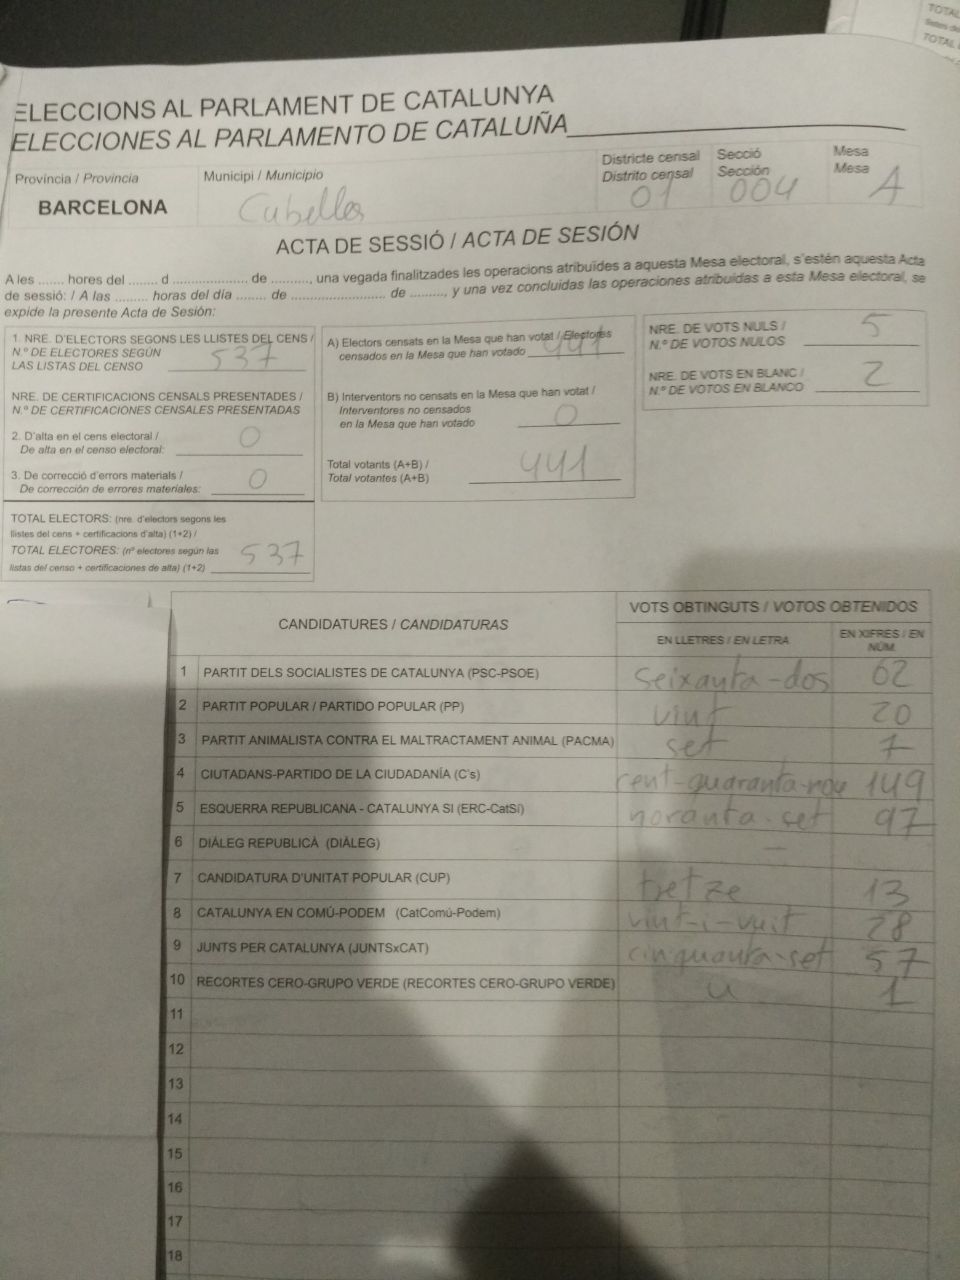 ELECCIONS AL PARLAMENT DE CATALUNYA
ELECCIONES AL PARLAMENTO DE CATALUÑA
Provincia / Provincia
BARCELONA
Municipi / Municipio
Cubelles
Districte censal
Distrito censal
01
Secció
Sección
004
Mesa
Mesa
A
ACTA DE SESSIÓ / ACTA DE SESIÓN
A les ....... hores del ........ d ........................ de .........., una vegada finalitzades les operacions atribuïdes a aquesta Mesa electoral, s'estén aquesta Acta
de sessió: / A las ......... horas del día ........ de ......................... de ........., y una vez concluidas las operaciones atribuidas a esta Mesa electoral, se
expide la presente Acta de Sesión:
1. NRE. D'ELECTORS SEGONS LES LLISTES DEL CENS /
N.º DE ELECTORES SEGÚN
LAS LISTAS DEL CENSO 537
NRE. DE CERTIFICACIONS CENSALS PRESENTADES /
N.º DE CERTIFICACIONES CENSALES PRESENTADAS
2. D'alta en el cens electoral /
De alta en el censo electoral: 0
3. De correcció d'errors materials /
De corrección de errores materiales: 0
TOTAL ELECTORS: (nre. d'electors segons les
llistes del cens + certificacions d'alta) (1+2) /
TOTAL ELECTORES: (nº electores según las
listas del censo + certificaciones de alta) (1+2) 537
A) Electors censats en la Mesa que han votat / Electores
censados en la Mesa que han votado 441
B) Interventors no censats en la Mesa que han votat /
Interventores no censados
en la Mesa que han votado 0
Total votants (A+B) /
Total votantes (A+B) 441
NRE. DE VOTS NULS /
N.º DE VOTOS NULOS 5
NRE. DE VOTS EN BLANC /
N.º DE VOTOS EN BLANCO 2
CANDIDATURES / CANDIDATURAS
VOTS OBTINGUTS / VOTOS OBTENIDOS
EN LLETRES / EN LETRA
EN XIFRES / EN
NÚM.
1 PARTIT DELS SOCIALISTES DE CATALUNYA (PSC-PSOE) seixanta-dos 62
2 PARTIT POPULAR / PARTIDO POPULAR (PP) vint 20
3 PARTIT ANIMALISTA CONTRA EL MALTRACTAMENT ANIMAL (PACMA) set 7
4 CIUTADANS-PARTIDO DE LA CIUDADANÍA (C's) cent-quaranta-nou 149
5 ESQUERRA REPUBLICANA - CATALUNYA SI (ERC-CatSí) noranta-set 97
6 DIÀLEG REPUBLICÀ (DIÀLEG) —
7 CANDIDATURA D'UNITAT POPULAR (CUP) tretze 13
8 CATALUNYA EN COMÚ-PODEM (CatComú-Podem) vint-i-vuit 28
9 JUNTS PER CATALUNYA (JUNTSxCAT) cinquanta-set 57
10 RECORTES CERO-GRUPO VERDE (RECORTES CERO-GRUPO VERDE) u 1
11
12
13
14
15
16
17
18